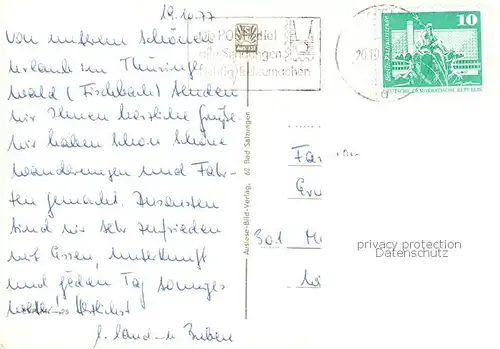 19.10.77
Von unserem schönen
Urlaub im Thüringer
wald (Fischbach) senden
wir Ihnen herzliche Grüße
wir haben schon schöne
Wanderungen und Fahr-
ten gemacht. Ansonsten
sind wir sehr zufrieden
mit Essen, Unterkunft
und jeden Tag sonniges
Herzlichst
AUSLESE
Sendungen
richtig freizumachen
20.10
10
Berlin, Rathausstraße
DEUTSCHE DEMOKRATISCHE REPUBLIK
Auslese-Bild-Verlag, 62 Bad Salzungen
Fa
301 M
privacy protection
Datenschutz